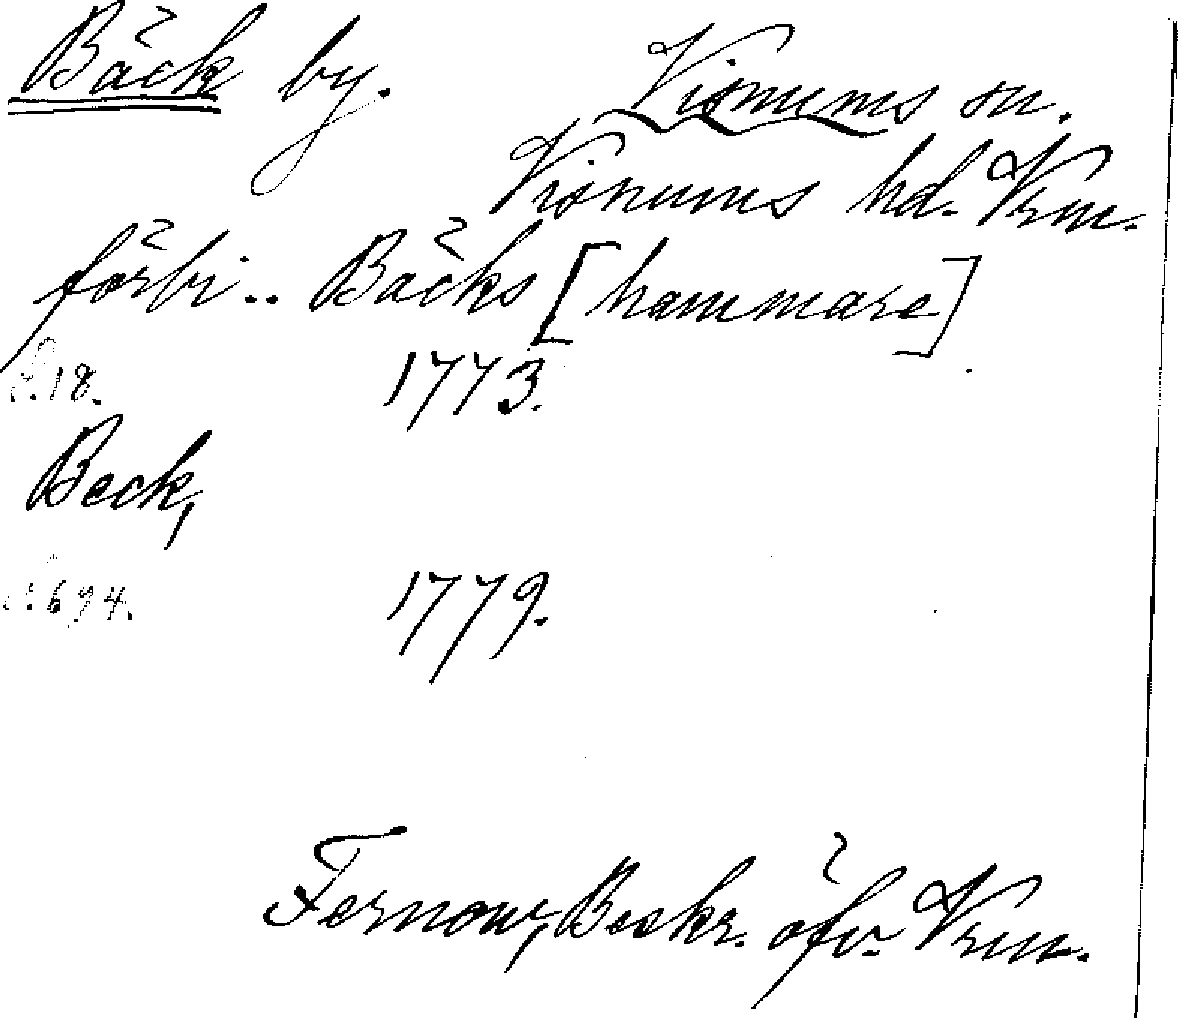 Bäck by. Visnums sn.
Visnums hd. Vrm.
förbi .. Bäcks [hammare]
S. 18. 1773.
Beck,
S. 694. 1779.
Fernow, Beskr. öfv. Vrm.